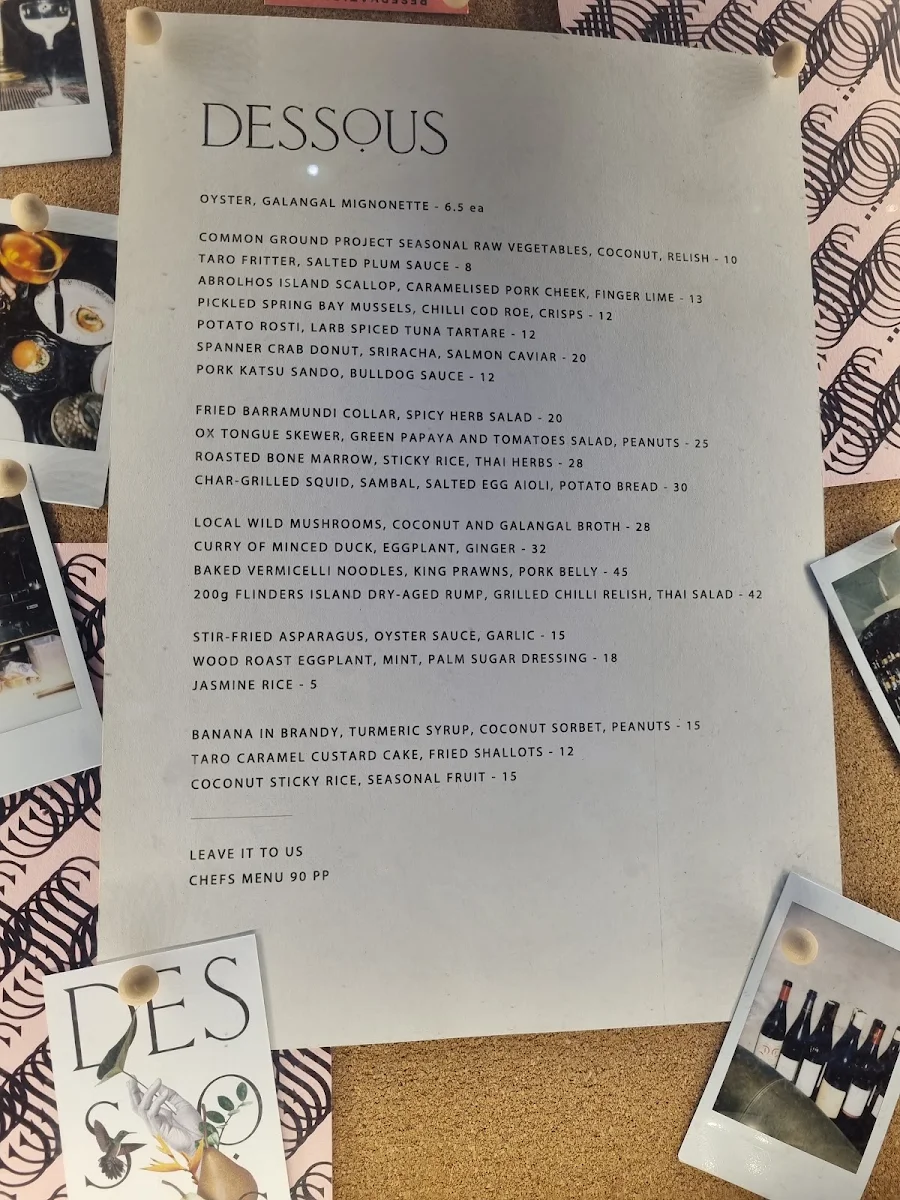 DESSOUS
OYSTER, GALANGAL MIGNONETTE - 6.5 ea
COMMON GROUND PROJECT SEASONAL RAW VEGETABLES, COCONUT, RELISH - 10
TARO FRITTER, SALTED PLUM SAUCE - 8
ABROLHOS ISLAND SCALLOP, CARAMELISED PORK CHEEK, FINGER LIME - 13
PICKLED SPRING BAY MUSSELS, CHILLI COD ROE, CRISPS - 12
POTATO ROSTI, LARB SPICED TUNA TARTARE - 12
SPANNER CRAB DONUT, SRIRACHA, SALMON CAVIAR - 20
PORK KATSU SANDO, BULLDOG SAUCE - 12
FRIED BARRAMUNDI COLLAR, SPICY HERB SALAD - 20
OX TONGUE SKEWER, GREEN PAPAYA AND TOMATOES SALAD, PEANUTS - 25
ROASTED BONE MARROW, STICKY RICE, THAI HERBS - 28
CHAR-GRILLED SQUID, SAMBAL, SALTED EGG AIOLI, POTATO BREAD - 30
LOCAL WILD MUSHROOMS, COCONUT AND GALANGAL BROTH - 28
CURRY OF MINCED DUCK, EGGPLANT, GINGER - 32
BAKED VERMICELLI NOODLES, KING PRAWNS, PORK BELLY - 45
200g FLINDERS ISLAND DRY-AGED RUMP, GRILLED CHILLI RELISH, THAI SALAD - 42
STIR-FRIED ASPARAGUS, OYSTER SAUCE, GARLIC - 15
WOOD ROAST EGGPLANT, MINT, PALM SUGAR DRESSING - 18
JASMINE RICE - 5
BANANA IN BRANDY, TURMERIC SYRUP, COCONUT SORBET, PEANUTS - 15
TARO CARAMEL CUSTARD CAKE, FRIED SHALLOTS - 12
COCONUT STICKY RICE, SEASONAL FRUIT - 15
LEAVE IT TO US
CHEFS MENU 90 PP
DES
SO